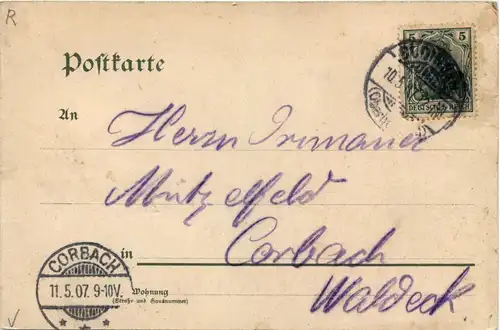 R
5 5
Postkarte
DEUTSCHES REICH
An
Herrn Primaner
Mützelfeld
in Corbach
Waldeck
Wohnung
(Straße und Hausnummer)
CORBACH
11.5.07. 9-10V.